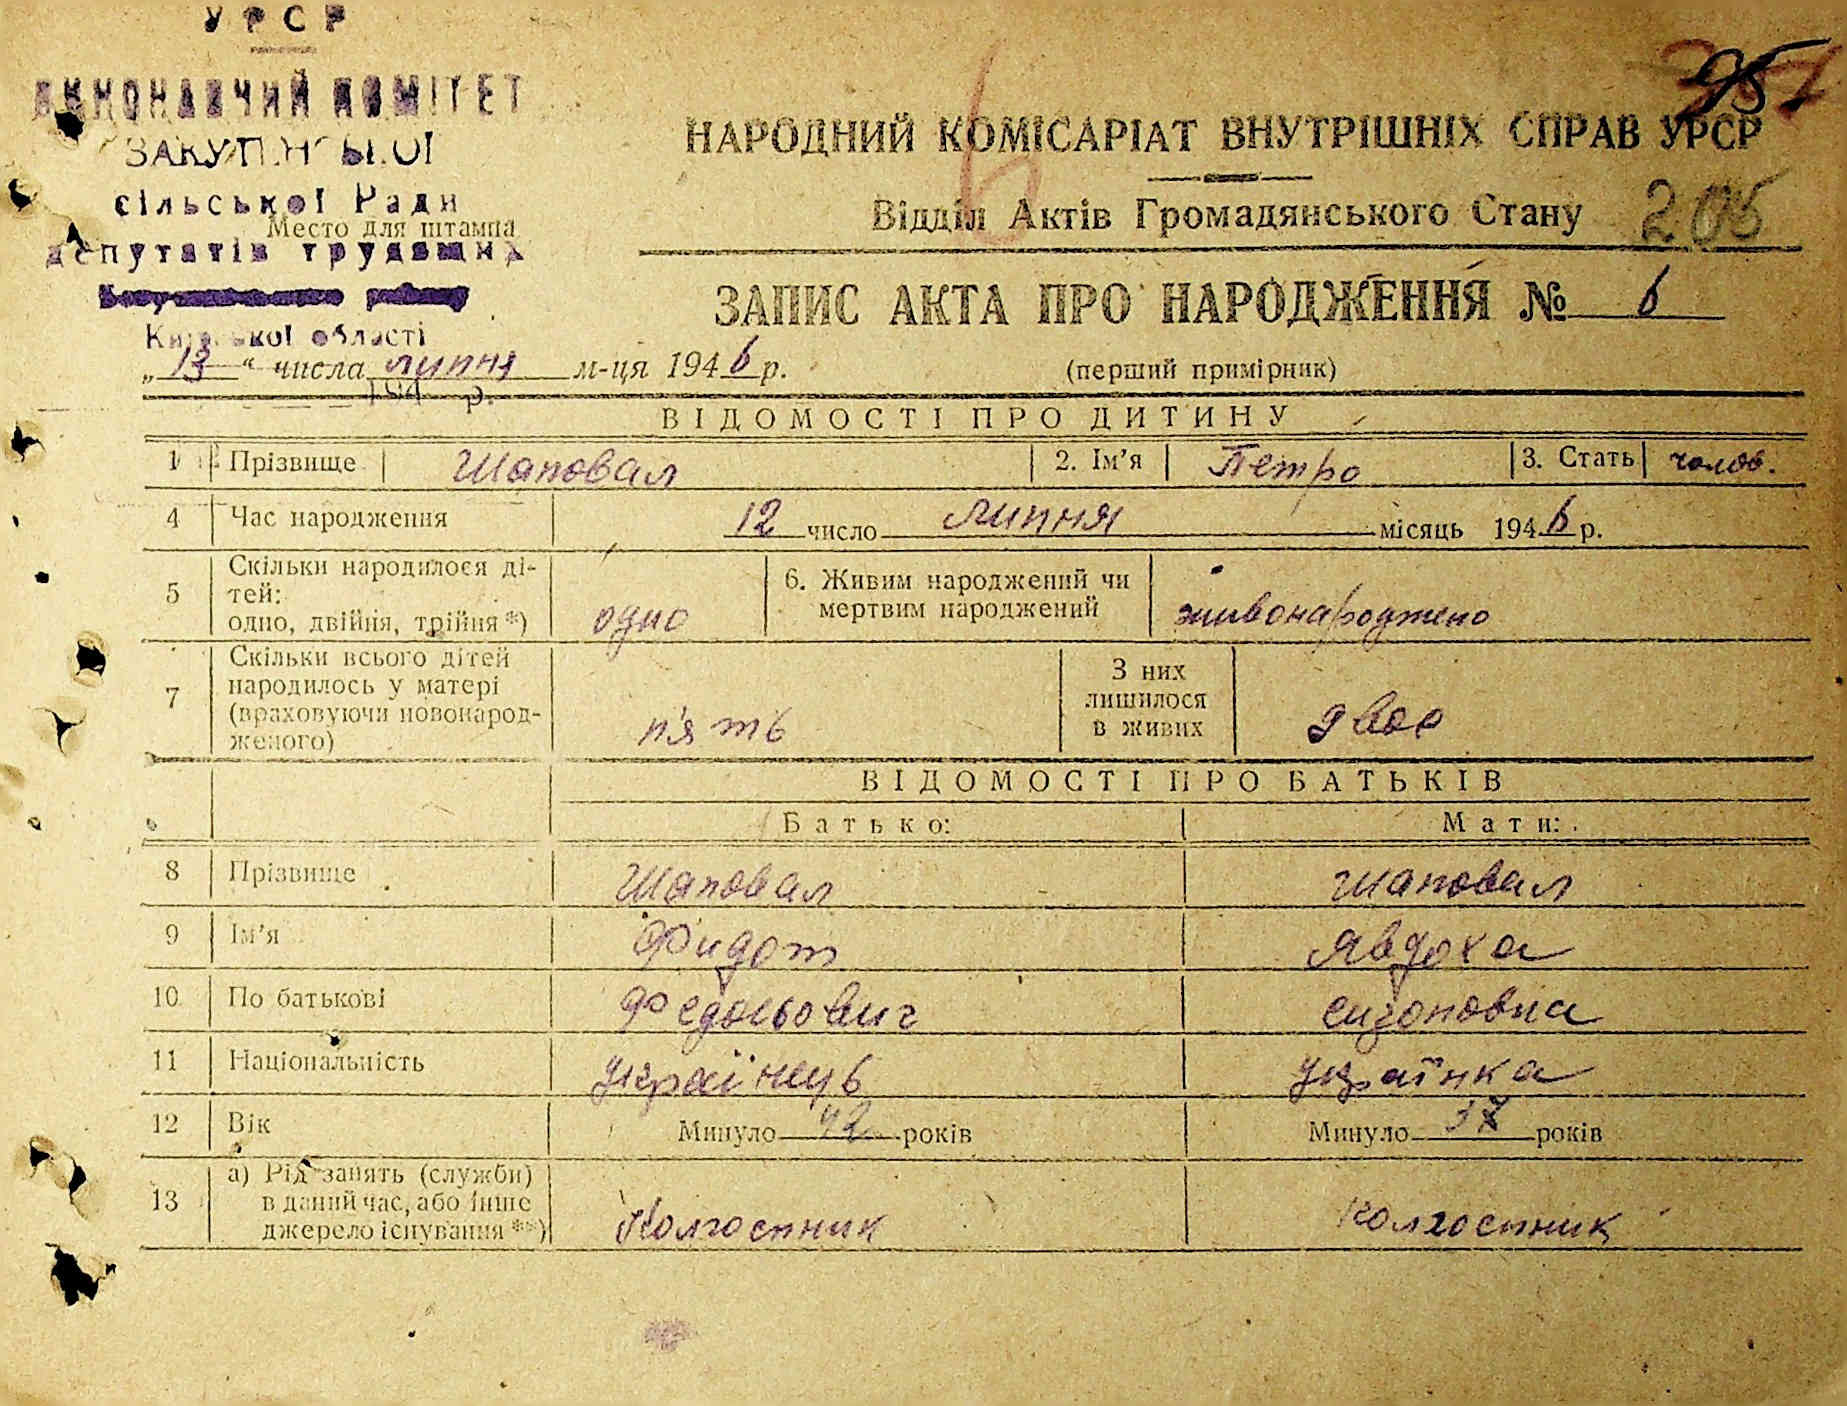 УРСР
ВИКОНАВЧИЙ КОМІТЕТ
сільської Ради
Место для штампа
депутатів трудящих
Київської області
„13“ числа липня м-ця 1946 р.
194 р.
95
НАРОДНИЙ КОМІСАРІАТ ВНУТРІШНІХ СПРАВ УРСР
Відділ Актів Громадянського Стану
205
ЗАПИС АКТА ПРО НАРОДЖЕННЯ № 6
(перший примірник)
ВІДОМОСТІ ПРО ДИТИНУ
1 Прізвище Шаповал 2. Ім’я Петро 3. Стать чолов.
4 Час народження 12 число липня місяць 1946 р.
5 Скільки народилося ді-
тей:
одно, двійня, трійня*) одно 6. Живим народжений чи
мертвим народжений живонароджено
7 Скільки всього дітей
народилось у матері
(враховуючи новонарод-
женого) п'ять З них
лишилося
в живих двоє
ВІДОМОСТІ ПРО БАТЬКІВ
Батько: Мати:
8 Прізвище Шаповал Шаповал
9 Ім’я Фидот Явдоха
10 По батькові Федосьович Сизоновна
11 Національність Українець Українка
12 Вік Минуло 42 років Минуло 37 років
13 а) Рід занять (служби)
в даний час, або інше
джерело існування**) Колгоспник Колгоспник